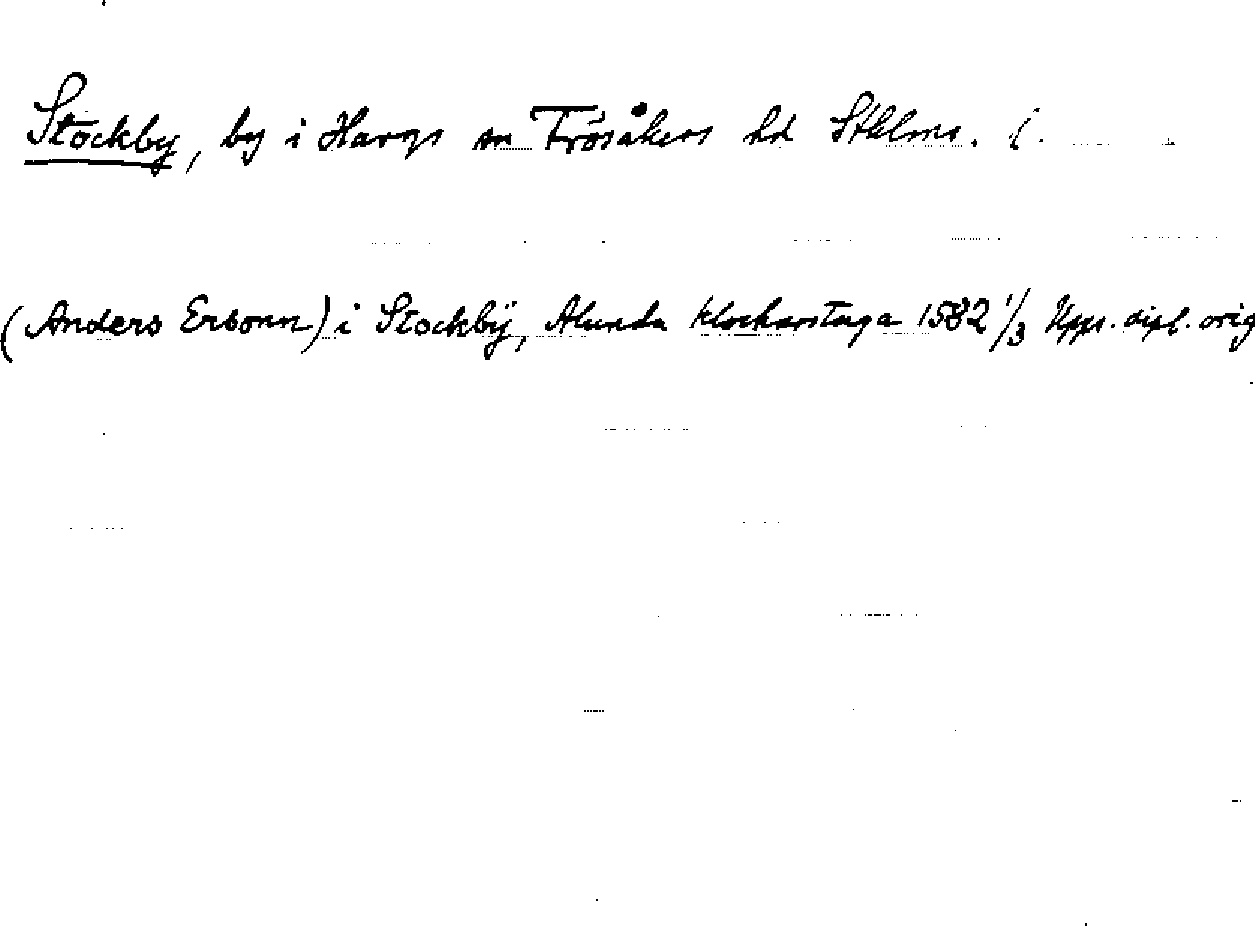 Stockby, by i Hargs sn Frösåkers hd Sthlms. l.
(Anders Ersonn) i Stockbÿ, Alunda klockarstuga 1582 1/3 Upps. dipl. orig